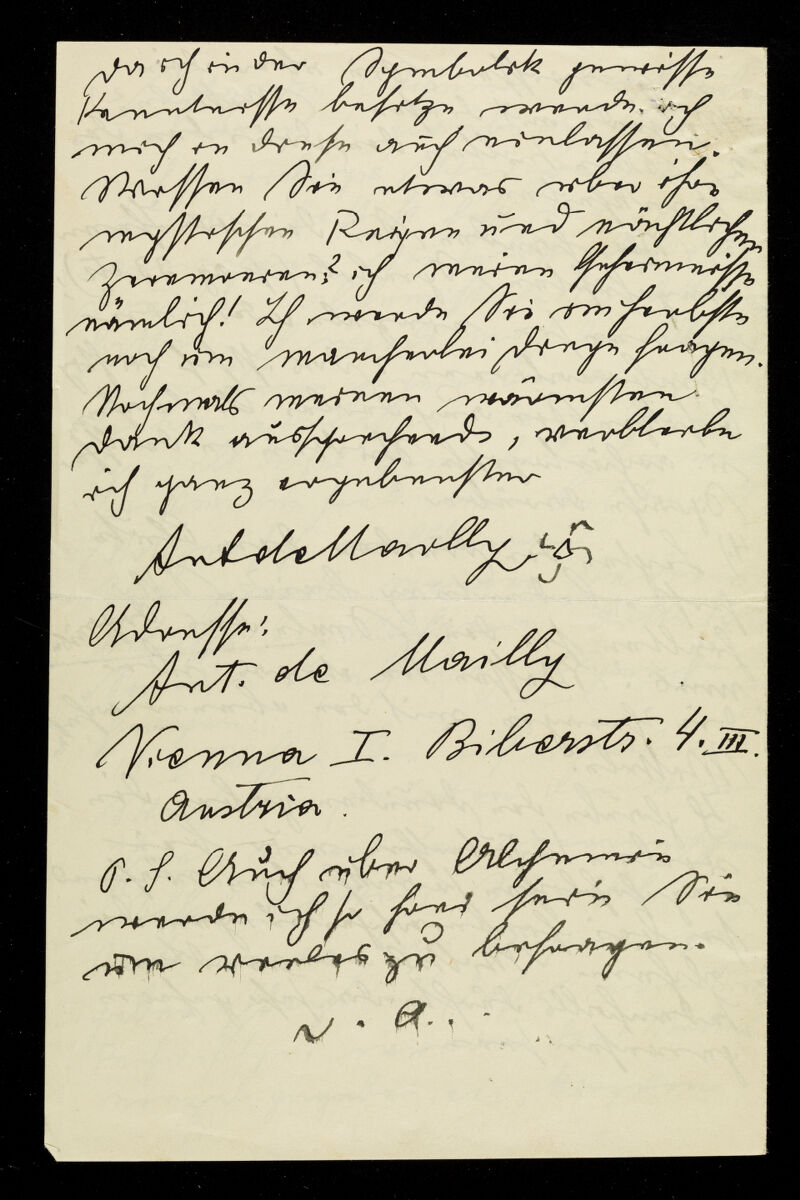 Da ich in der Symbolik gewisse
Kenntnisse besitze werde ich
mich in diese auch einlassen.
Wissen Sie etwas über ihre
mystischen Reigen und nächtlichen
Zeremonien? ich meine Geheimnisse
nämlich! Ich werde Sie im Herbste
noch um mancherlei Dinge fragen.
Nochmals meinen wärmsten
Dank aussprechend, verbleibe
ich ganz ergebenster
Ant de Mailly
Adresse:
Ant. de Mailly
Vienna I. Biberstr. 4. III.
Austria.
P. S. Auch über Alchemie
werde ich so frei sein Sie
um vieles zu befragen.